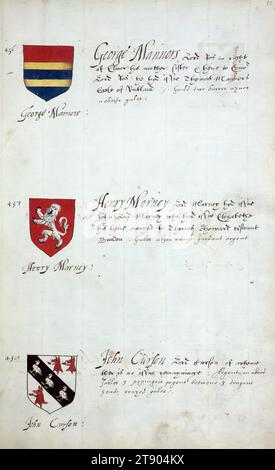 12
436
George Mannors Lord Ros in right
of Elinor his mother sister & heire to Edmd
Lord Ros he had issue Thomas Mannors
Earle of Rutland : Gould two barres azure
a cheife gules .
George Mannors :
437
Henry Marney Lord Marney had issue
John Lord Marney who had issue Elizabethe
his heire maryed to Thomas Howard viscont
Bindon : Gules a lyon rampant gardant argent
Henry Marney :
438
John Curson Lord Curson of whome
ther is no issue remayninge : Argent on a bend
sables 3 popinjays argent betwene 3 dragons
heads erazed gules .
John Curson :
alamy
Image ID: 2T904KX
www.alamy.com